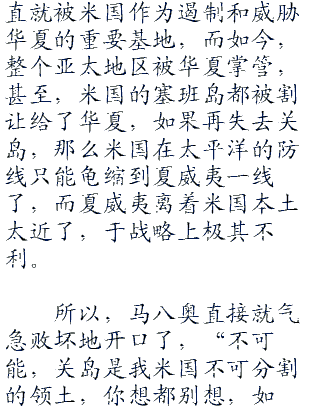 直就被米国作为遏制和威胁
华夏的重要基地，而如今，
整个亚太地区被华夏掌管，
甚至，米国的塞班岛都被割
让给了华夏，如果再失去关
岛，那么米国在太平洋的防
线只能龟缩到夏威夷一线
了，而夏威夷离着米国本土
太近了，于战略上极其不
利。
所以，马八奥直接就气
急败坏地开口了，“不可
能，关岛是我米国不可分割
的领土，你想都别想，如